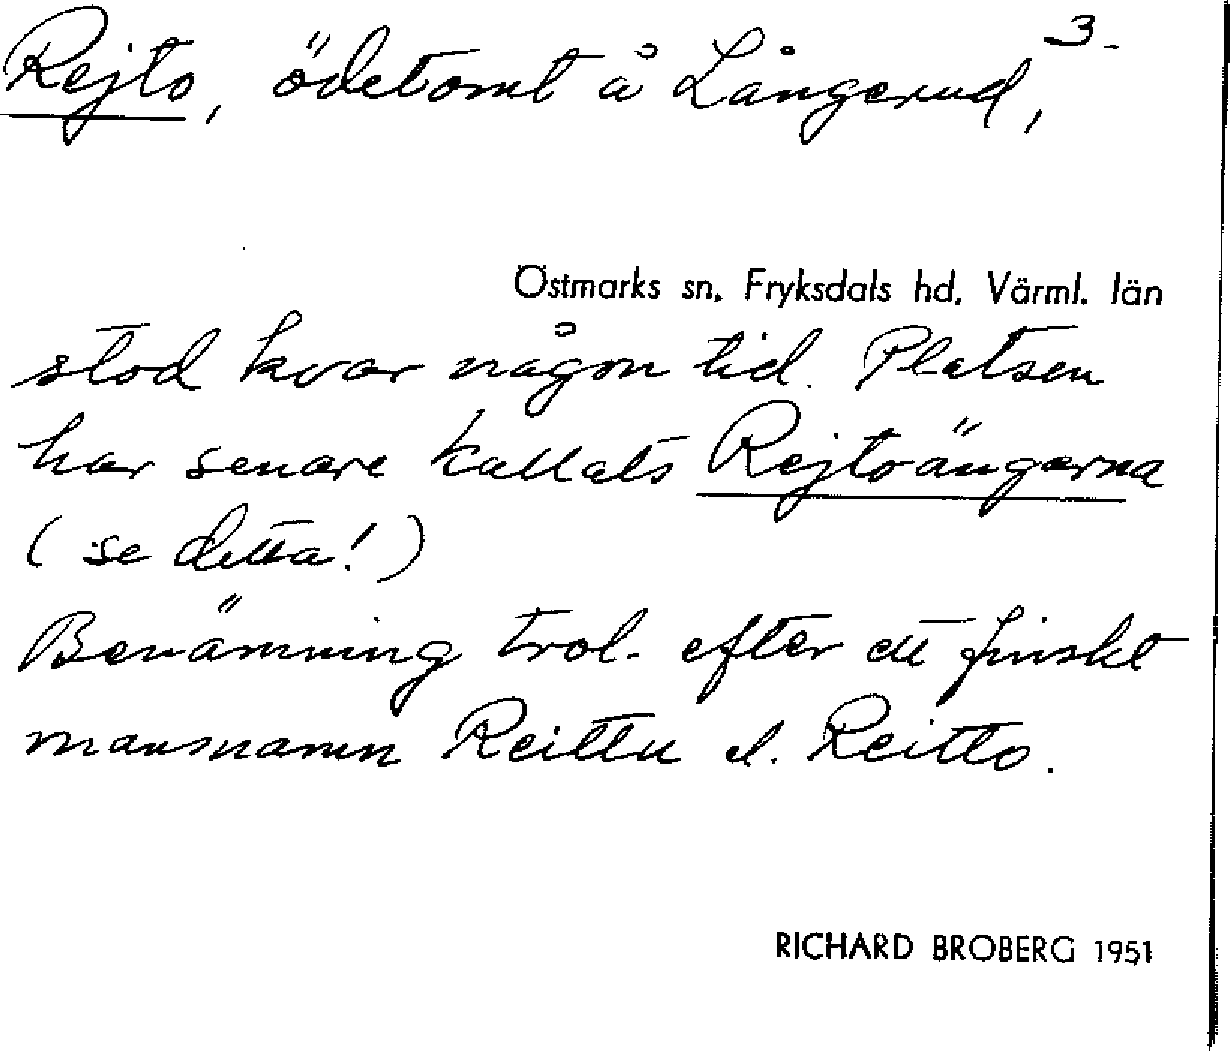 3.
Rejto, ödetomt å Långerud,
Östmarks sn, Fryksdals hd, Värml. län
stod kvar någon tid. Platsen
har senare kallats Rejtoängarna
(se detta!)
Benämning trol. efter ett finskt
mansnamn Reittu el. Reitto.
RICHARD BROBERG 1951